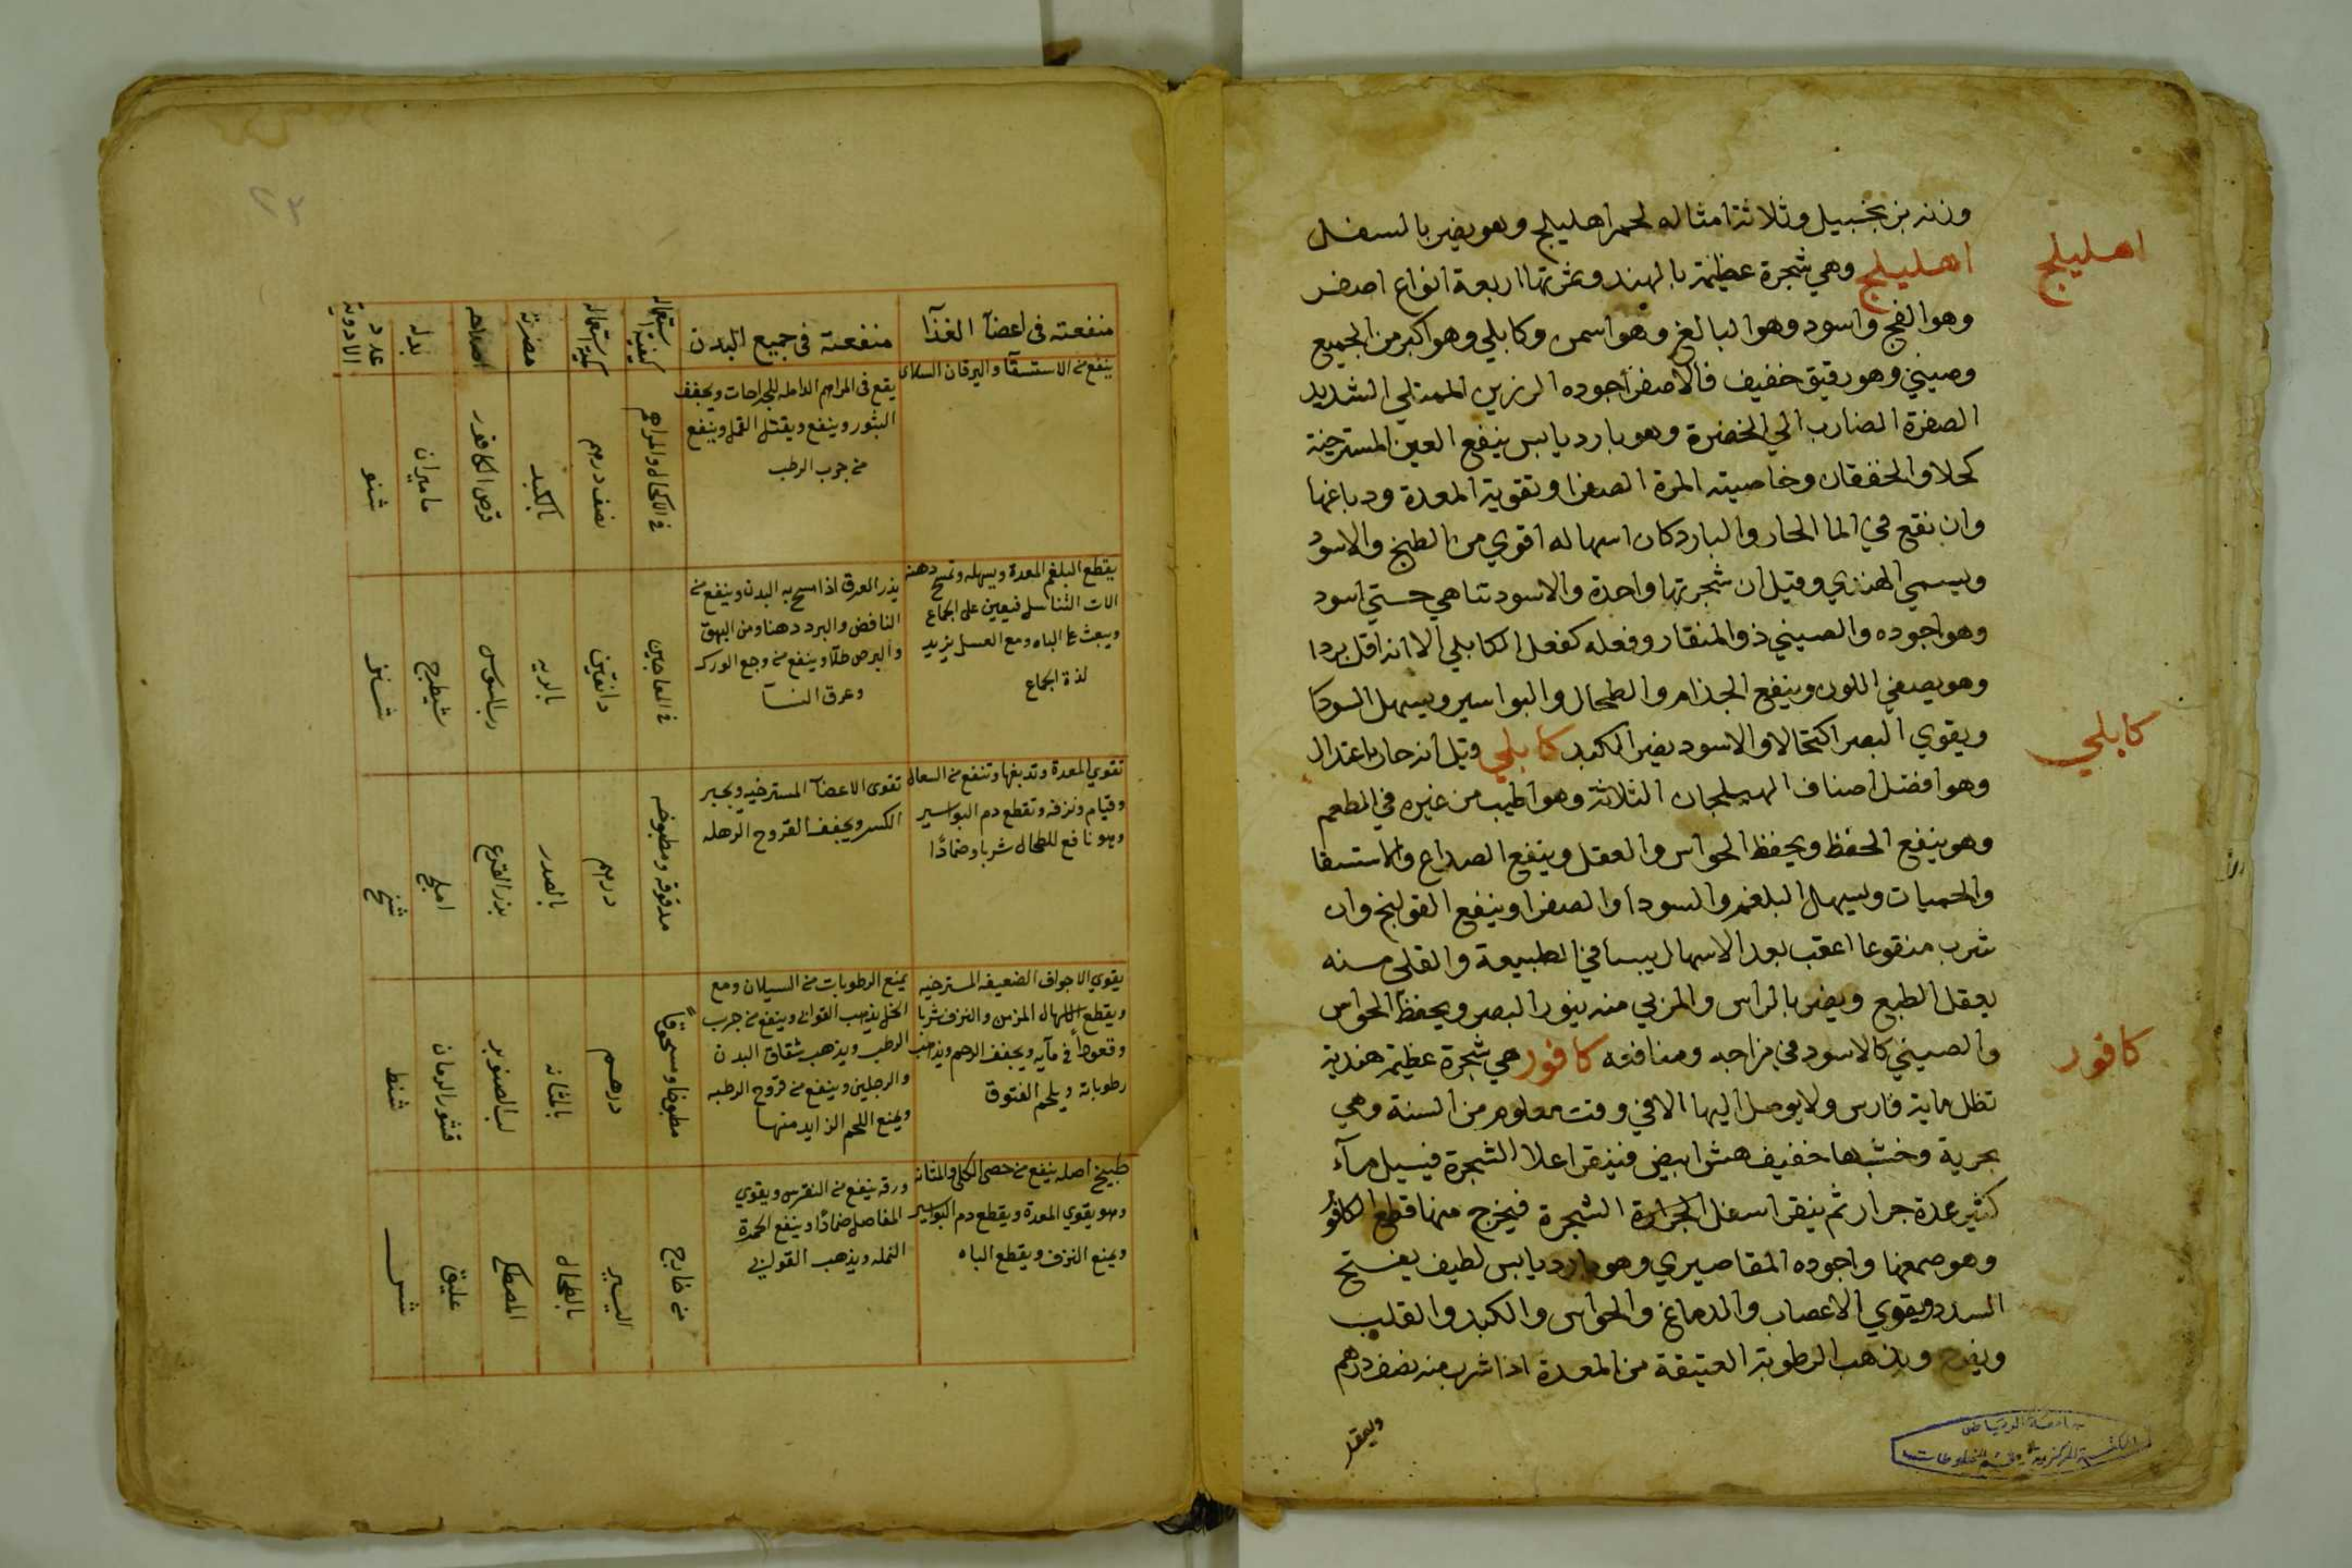 وزنه زنجبيل وثلاثة امثاله لحم اهليلج وهو يضر بالسفل
اهليلج
اهليلج وهي شجرة عظيمة بالهند وثمرتها اربعة انواع اصفر
وهو الفج واسود وهو البالغ وهو اسمن وكابلي وهو اكبر من الجميع
وصيني وهو رقيق خفيف فالاصفر اجوده الرزين الممتلي الشديد
الصفرة الضارب الي الخضرة وهو بارد يابس ينفع العين المسترخية
كحلا والخفقان وخاصيته المرة الصفرا وتقوية المعدة ودباغها
وان نقع في الما الحار والبارد كان اسهاله اقوي من الطبخ والاسود
ويسمي الهندي وقيل ان شجرتها واحدة والاسود تناهي حتي اسود
وهو اجوده والصيني ذو المنقار وفعله كفعل الكابلي الا انه اقل بردا
وهو يصفي اللون وينفع الجذام والطحال والبواسير ويسهل السودا
ويقوي البصر اكتحالا والاسود يضر الكبد كابلي وقيل انه حار باعتدال
كابلي
وهو افضل اصناف الهليلجان الثلاثة وهو اطيب من غيره في المطعم
وهو ينفع الحفظ ويحفظ الحواس والعقل وينفع الصداع والاستسقا
والحميات ويسهل البلغم والسودا والصفرا وينفع القولنج وان
شرب منقوعا اعقب بعد الاسهال يبسا في الطبيعة والقلي منه
يعقل الطبع ويضر بالراس والمربي منه ينور البصر ويحفظ الحواس
والصيني كالاسود في مزاجه ومنافعه كافور هي شجرة عظيمة هندية
كافور
تظل ماية فارس ولا يوصل اليها الا في وقت معلوم من السنة وهي
بحرية وخشبها خفيف هش ابيض فينقر اعلا الشجرة فيسيل مآء
كثير عدة جرار ثم ينقر اسفل الشجرة فيخرج منها قطع الكافور
وهو صمغها واجوده المقاصيري وهو بارد يابس لطيف يفتح
السدد ويقوي الاعصاب والدماغ والحواس والكبد والقلب
ويفرح ويذهب الرطوبة العتيقة من المعدة اذا شرب منه نصف درهم
جامعة الرياض
المكتبة المركزية قسم المخطوطات
٢٣
منفعته في اعضآ الغذآ
منفعته في جميع البدن
كيفية استعماله
كمية استعماله
مضرته
اصلاحه
بدله
عدد الادوية
ينفع من الاستسقآ واليرقان
يقع في المراهم الدامله للجراحات ويجفف
البثور وينفع ويقتل القمل وينفع
من جرب الرطب
في الاكحال والمراهم
نصف درهم
بالكبد
قرص الكافور
ماميران
شنو
يقطع البلغم المعدة ويسهله وتمسح دهنه
الات التناسل فيعين على الجماع
ويبعث على الباه ومع العسل يزيد
لذة الجماع
يدر العرق اذا مسح به البدن وينفع من
النافض والبرد دهنا ومن البهق
والبرص طلآ وينفع من وجع الورك
وعرق النسآ
في المعاجين
دانقين
بالريه
رب السوس
شيطرج
تقوي المعدة وتدبغها وتنفع من السعال
وقيام ونزفه وتقطع دم البواسير
وهو نافع للطحال شربا وضمادًا
تقوى الاعضآ المسترخيه ويجبر
الكسر ويجفف القروح الرهله
مدقوقه ومطبوخه
درهم
بالصدر
بزر القرع
املج
شنح
يقوي الاجواف الضعيفه المسترخيه
ويقطع الاسهال المزمن والنزف شربا
وقعودًا في مآيه ويجفف الرحم ويذهب
رطوباته ويلحم الفتوق
يمنع الرطوبات من السيلان ومع
الخل يذهب القوابي وينفع من جرب
الرطب ويذهب شقاق البدن
والرجلين وينفع من قروح الرطبه
ويمنع اللحم الزايد منها
مطبوخا ومسحوقاً
درهم
بالمثانه
لب الصنوبر
قشور الرمان
شنط
طبيخ اصله ينفع من حصى الكلى والمثانه
وهو يقوي المعدة ويقطع دم البواسير
ويمنع النزف ويقطع الباه
ورقه ينفع من النقرس ويقوي
المفاصل ضمادًا وينفع الحمرة
النمله ويذهب القوابي
من خارج
اليسير
بالطحال
المصطكى
عليق